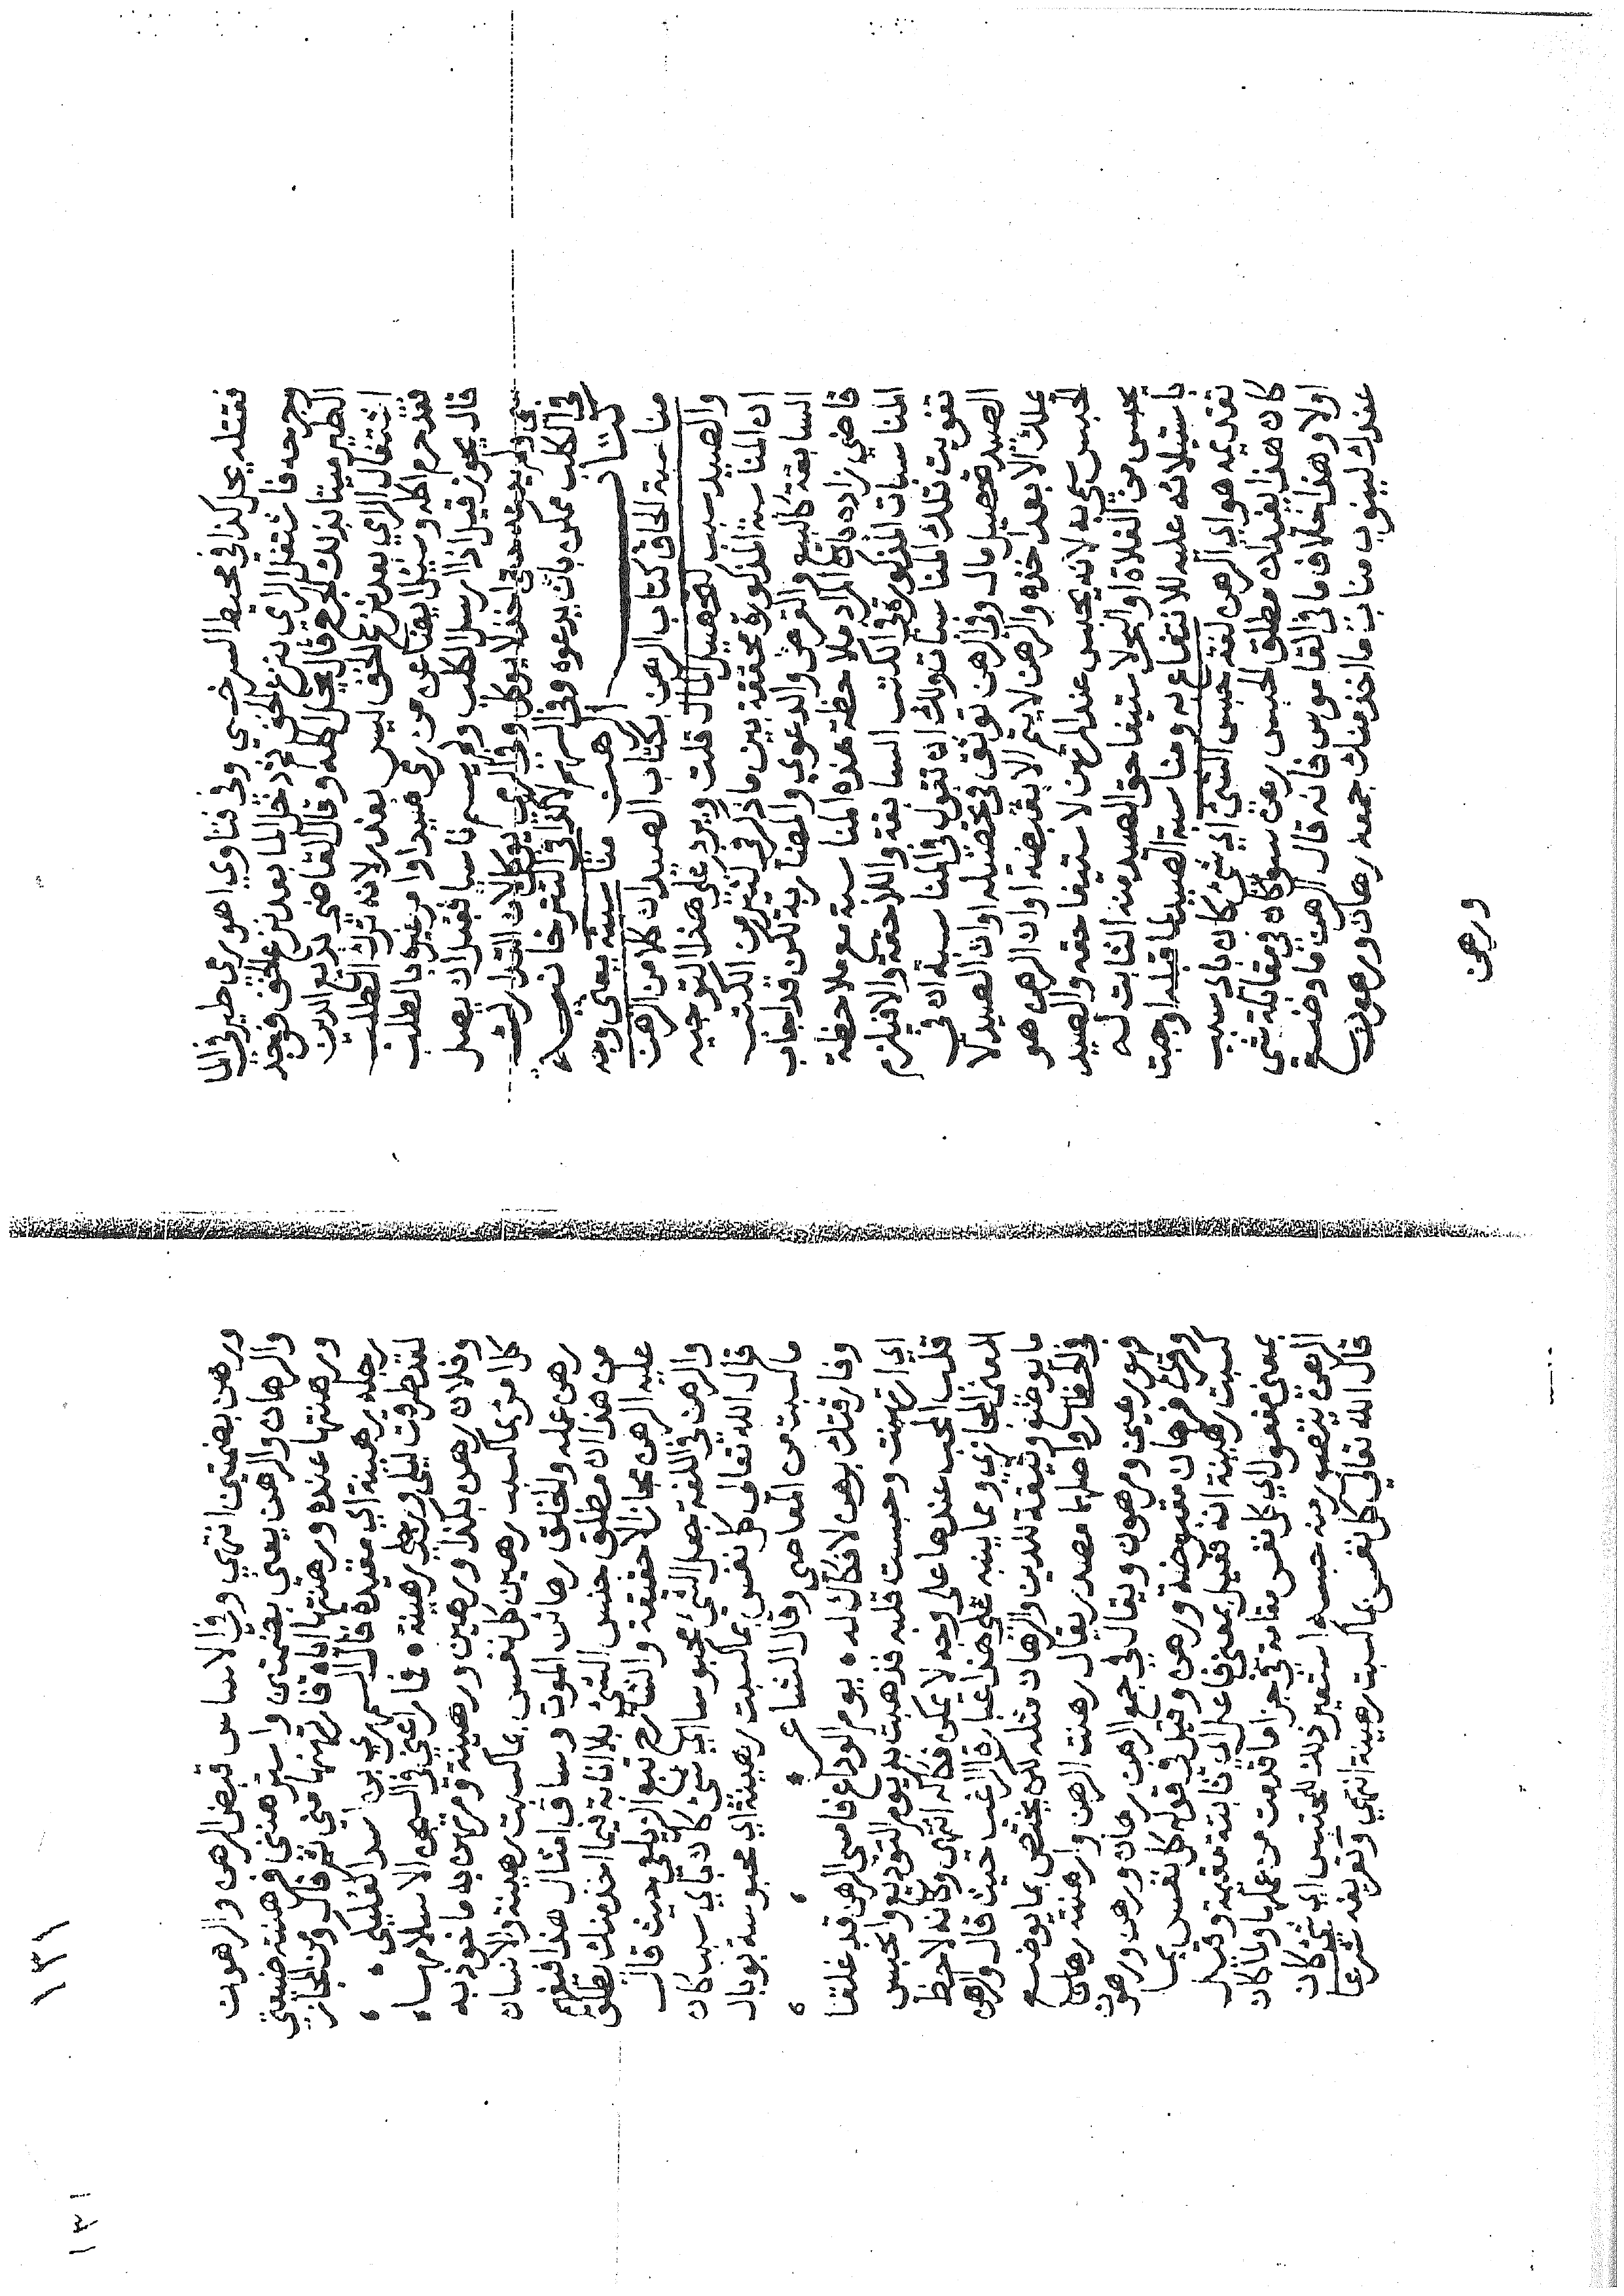 فقتله يحل كذا في محيط السرخسي وفي فتاوي اهو رمي طير في الما
وجرحه فاشتغل الرامي بنزع الخف ثم دخل الما بعد نزع الخف فوجد
الطير ميتا بذلك الجرح قال يحل اكله وقال القاضي بديع الدين
اشتغال الرامي بعد نزع الخف ليس بعذر لانه ترك الطلب
فقد حرم اكله وسئل ايضا عن من رمى صيدا وامر غيره بالطلب
قال يجوز قيل اذا ارسل الكلب ولم يسم ناسيا فقبل ان يصل
سمى ولم يزجره حتى اخذ لا يوكل وفي الرمي يوكل لان التدارك
في الكلب ممكن بان يدعوه وفي السهم لا كذا في التترخانيه
كتاب الرهن مناسبته يعني وجه
مناسبة الحاق كتاب الرهن بكتاب الصيد ان كلا من الرهن
والصيد سبب لتحصيل المال قلت ويرد على هذا التوجيه
ان المناسبة المذكورة محققة بين ما ذكر في كثير من الكتب
السابقة كالبيع والقرض والدعوى والمضاربه لكن قد اجاب
قاضي زاده بان المراد ملاحظة هذه المناسبة مع ملاحظة
المناسبات المذكورة في الكتب السابقة واللاحقة والا فيلزم
تفويت تلك المناسبات ولك ان تقول في المناسبة ان في
الصيد تحصيل مال وفي الرهن توثق في تحصيله او ان الصيد لا
يملك الا بعد اخذه والرهن لا يتم الا بقبضه او ان الرهن هو
الحبس سمي به لانه يحبس عند المرتهن لاستيفا حقه والصيد
يحبس من الفلاة او البحر لاستيفا حق الصيد منه الثابت له
باستيلائه عليه للانتفاع به ومناسبة الصيد لما قبله اوجبت
تقديمه هو اي الرهن لغة حبس الشي اي شي كان باي سبب
كان هذا يفيد ان مطلق الحبس رهن سوا كان في مقابلة شي
اولا وهذا خلاف ما في القاموس فانه قال الرهن ما وضع
عندك لينوب مناب ما اخذ منك جمعه رهان ورهون
ورهن
١٣١
ورهن بضمتين انتهي وفي الاساس قبض الرهن والرهون
والرهان والرهن يعني بضمتين واسترهنني فرهنته ضيعتي
ورهنتها عنده ورهنتها اياه فارتهنها مني ثم قال ومن المجاز
رجله رهينة اي مقيدة قال السمهري بن اسد العكلي
لقد طرقت ليلى ورجلي رهينة فما راعني في السجن الا سلامها
وفلان رهن بكذا ورهين ورهينة ومرتهن به ماخوذ به
كل امرئ بما كسب رهين كل نفس بما كسبت رهينة والانسان
رهن عمله والخلق رهائن الموت وساق امثال هذا فيفهم
من هذا ان مطلق حبس الشي بلا انابة فيما اخذ منك يطلق
عليه الرهن مجازا لا حقيقة والشارح تبع الزيلعي حيث قال
والرهن في اللغة جعل الشي محبوسا اي شي كان باي سبب كان
قال الله تعالى كل نفس بما كسبت رهينة اي محبوسة بوبال
ما كسبت من المعاصي وقال الشاعر
وفارقتك برهن لا فكاك له يوم الوداع فامسى الرهن قد غلقا
اي ارتهنت وحبست قلبه فذهبت به يوم التوديع واحتبس
قلب المحب عندها على وجه لا يمكن فكاكه انتهي وكانه لاحظ
المعنى المجازي ومما يبينه على هذا عبارة الراغب حيث قال والرهن
ما يوضع وثيقة للدين والرهان مثله لكن يختص بما يوضع
في الخطار واصلهما مصدر يقال رهنت الرهن وارهنته رهانا
فهو رهين ومرهون ويقال في جمع الرهن رهان ورهن ورهون
وقرئ فرهان مقبوضة ورهن وقيل في قوله كل نفس بما
كسبت رهينة انه فعيل بمعنى فاعل اي ثابتة مقيمة وقيل
بمعنى مفعول اي كل نفس مقامة في جزا ما قدمت من عملها ولما كان
الرهن يتصور منه حبسه استعير ذلك للمحتبس اي شي كان
قال الله تعالى كل نفس بما كسبت رهينة انتهي وتعريفه شرعا
١٣١